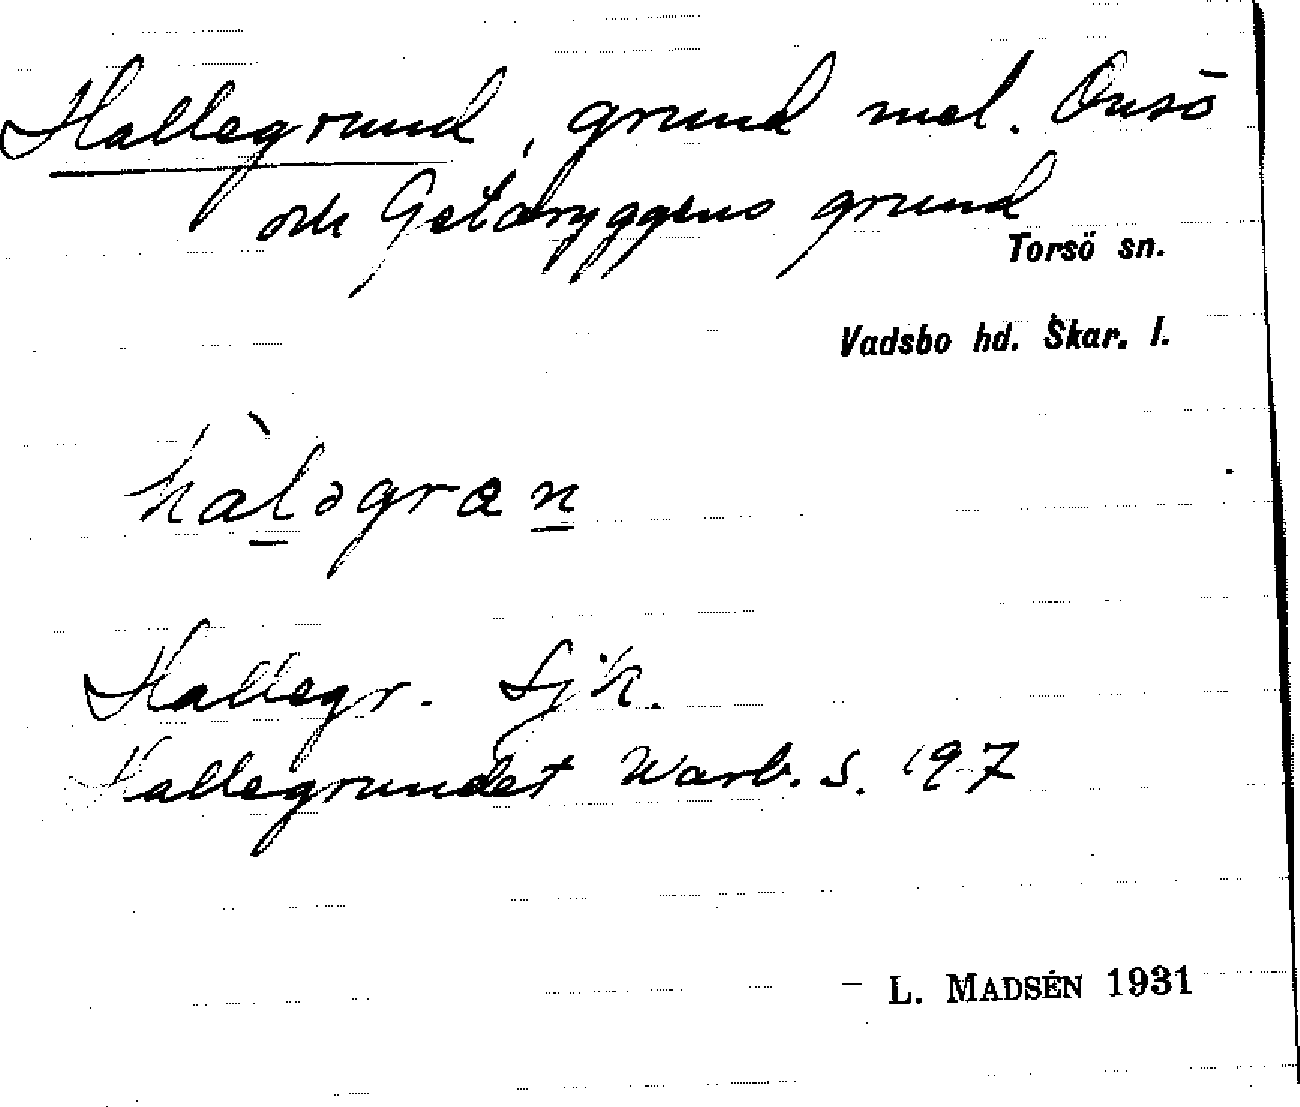 Hallegrund, grund mel. Onsö
och Getabryggens grund
Torsö sn.
Vadsbo hd. Skar. l.
hàləgrɵn
Hallegr. Sjk.
Hallegrundet Warb. s. 197
– L. MADSÉN 1931